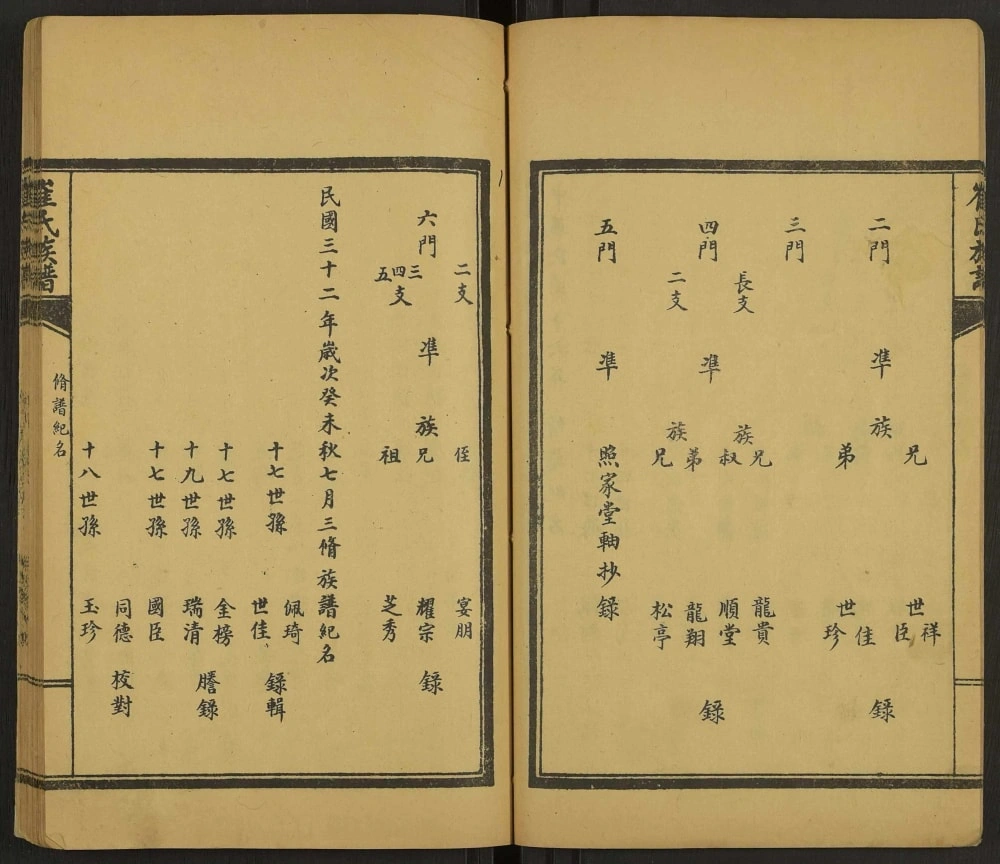 崔氏族譜
二門 準族 錄
兄 世祥 世臣
弟 世佳 世珍
三門
四門 準 錄
長支 族 兄 龍貴
叔 順堂
二支 族 弟 龍翔
兄 松亭
五門 準 照家堂軸抄錄
二支 侄 宴朋
六門 準族兄 耀宗 錄
三四五支 祖 芝秀
民國三十二年歲次癸未秋七月三脩族譜紀名
十七世孫 佩琦 世佳 錄輯
十七世孫 金榜 謄錄
十九世孫 瑞清
十七世孫 國臣
同德 校對
十八世孫 玉珍
崔氏族譜
脩譜紀名